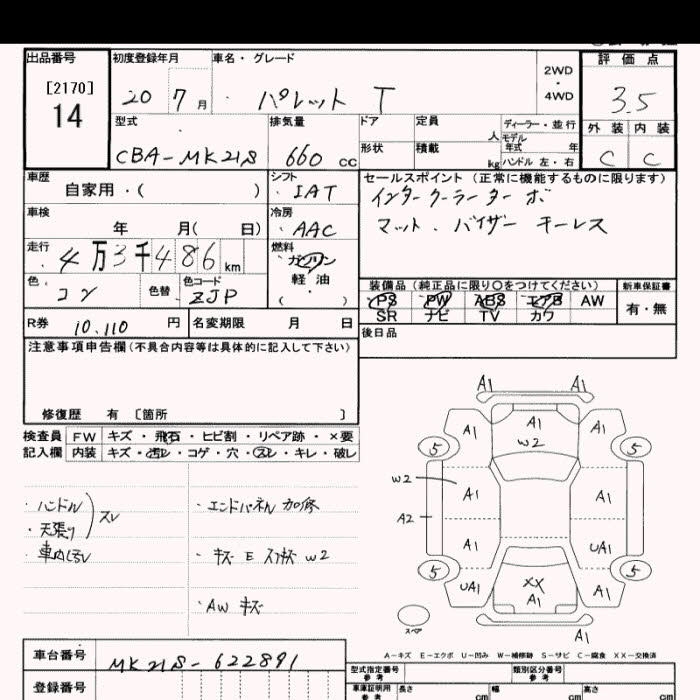 出品番号
[2170]
14
初度登録年月
20 7月
車名・グレード
パレット T
2WD
・
4WD
評価点
3.5
型式
CBA-MK21S
排気量
660 cc
ドア
形状
定員
人
積載
kg
ディーラー・並行
モデル
年式 年
ハンドル 左・右
外装 内装
C C
車歴
自家用・( )
シフト
IAT
セールスポイント (正常に機能するものに限ります)
インタークーラーターボ
マット、バイザー キーレス
車検
年 月( 日)
冷房
AAC
走行
4万3千486km
燃料
ガソリン
軽油
( )
色
コン
色替
色コード
ZJP
装備品(純正品に限り〇をつけてください)
PS PW ABS エアB AW
SR ナビ TV カワ
新車保証書
有・無
R券
10.110 円
名変期限 月 日
後日品
注意事項申告欄(不具合内容等は具体的に記入して下さい)
修復歴 有 〔箇所 〕
検査員
記入欄
FW キズ・飛石・ヒビ割・リペア跡・×要
内装 キズ・汚レ・コゲ・穴・スレ・キレ・破レ
・ハンドル
・天張り
スレ
・車内汚レ
・エンドパネル 加修
・キズ E W2
・AW キズ
A1 A1
A1 A1 A1
W2
5 5
W2
A1 A1
A2
A1 UA1
5 5
UA1 XX A1
A1
A1
スペア
A-キズ E-エクボ U-凹み W-補修跡 S-サビ C-腐食 XX-交換済
車台番号
MK21S-622891
登録番号
型式指定番号
参考
類別区分番号
参考
車庫証明用
参考
長さ cm
幅 cm
高さ cm